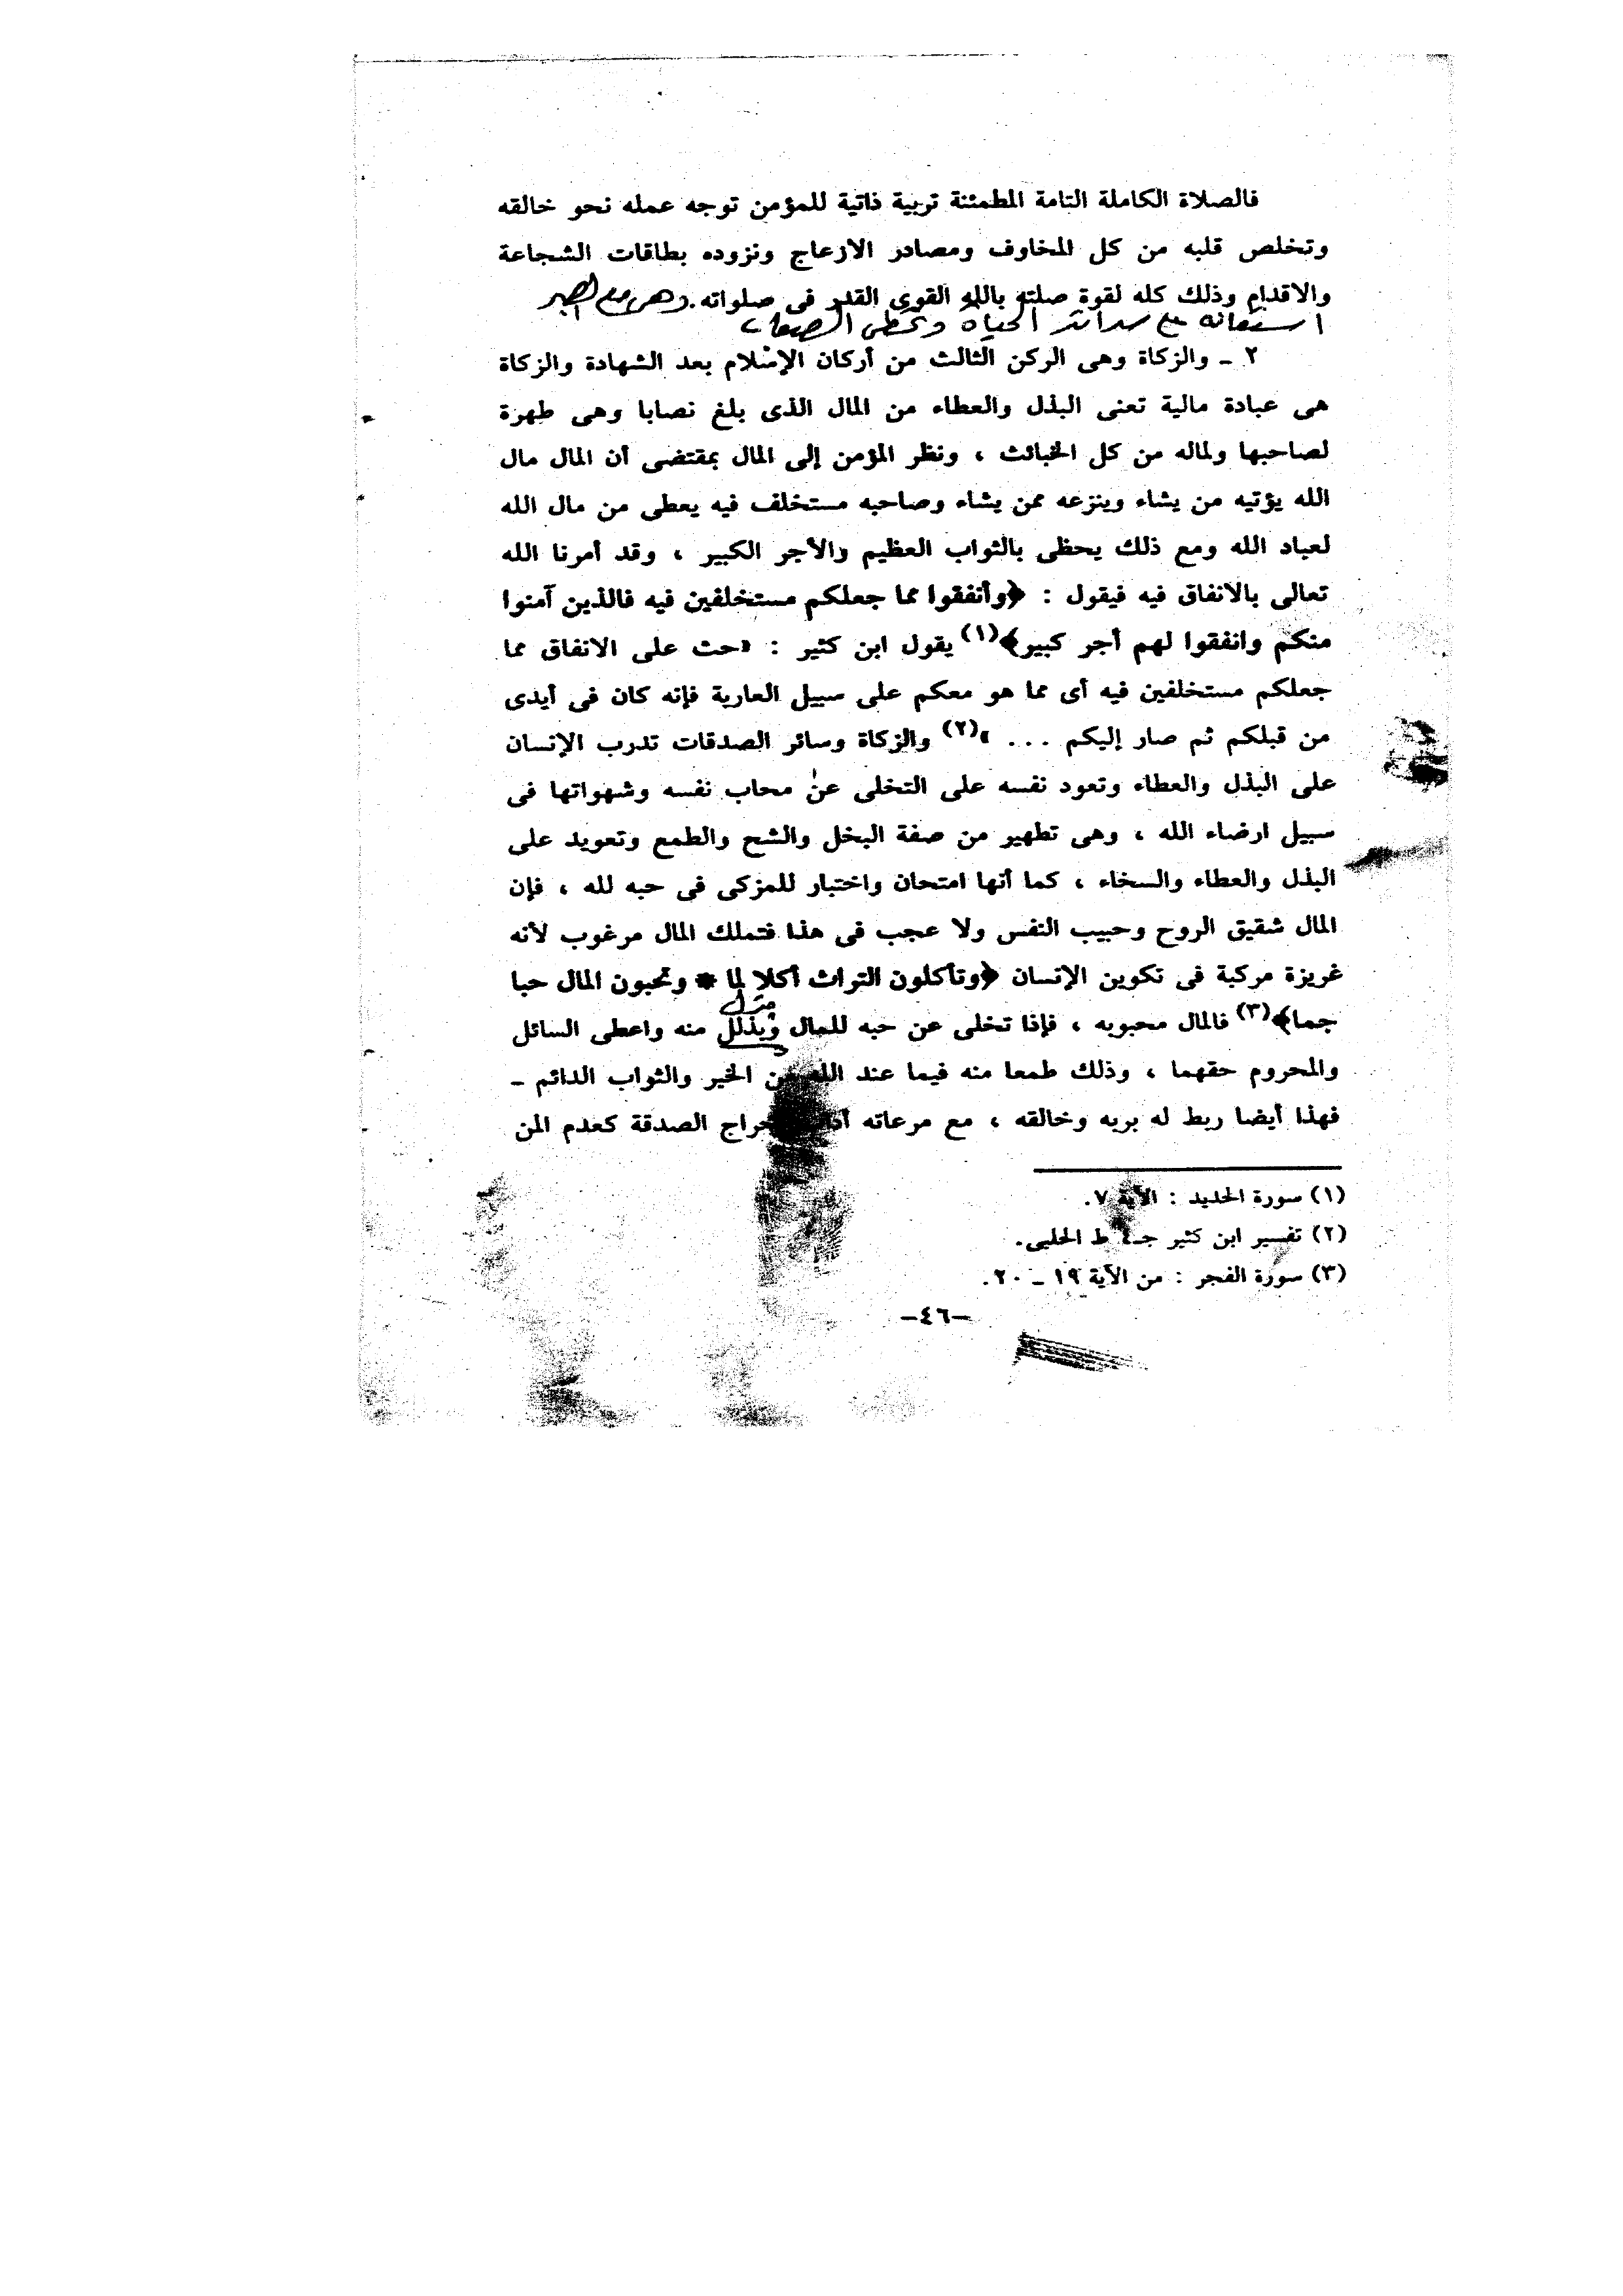 فالصلاة الكاملة التامة المطمئنة تربية ذاتية للمؤمن توجه عمله نحو خالقه
وتخلص قلبه من كل المخاوف ومصادر الازعاج ونزوده بطاقات الشجاعة
والاقدام وذلك كله لقوة صلته بالله القوى القدر فى صلواته. وهى مع الصبر
استعانة على شدائد الحياة وتخطى الصعاب
٢ ـ والزكاة وهى الركن الثالث من أركان الإسلام بعد الشهادة والزكاة
هى عبادة مالية تعنى البذل والعطاء من المال الذى بلغ نصابا وهى طهرة
لصاحبها ولماله من كل الخبائث ، ونظر المؤمن إلى المال بمقتضى أن المال مال
الله يؤتيه من يشاء وينزعه ممن يشاء وصاحبه مستخلف فيه يعطى من مال الله
لعباد الله ومع ذلك يحظى بالثواب العظيم والأجر الكبير ، وقد أمرنا الله
تعالى بالانفاق فيه فيقول : ﴿وأنفقوا مما جعلكم مستخلفين فيه فالذين آمنوا
منكم وانفقوا لهم أجر كبير﴾(١) يقول ابن كثير : «حث على الانفاق مما
جعلكم مستخلفين فيه أى مما هو معكم على سبيل العارية فإنه كان فى أيدى
من قبلكم ثم صار إليكم ... »(٢) والزكاة وسائر الصدقات تدرب الإنسان
على البذل والعطاء وتعود نفسه على التخلى عن محاب نفسه وشهواتها فى
سبيل ارضاء الله ، وهى تطهير من صفة البخل والشح والطمع وتعويد على
البذل والعطاء والسخاء ، كما أنها امتحان واختبار للمزكى فى حبه لله ، فإن
المال شقيق الروح وحبيب النفس ولا عجب فى هذا فتملك المال مرغوب لأنه
غريزة مركبة فى تكوين الإنسان ﴿وتأكلون التراث أكلا لما * وتحبون المال حبا
جما﴾(٣) فالمال محبوبه ، فإذا تخلى عن حبه للمال ويذلل منه واعطى السائل
والمحروم حقهما ، وذلك طمعا منه فيما عند الله من الخير والثواب الدائم ـ
فهذا أيضا ربط له بربه وخالقه ، مع مرعاته الصدقة كعدم المن
(١) سورة الحديد : الآية ٧.
(٢) تفسير ابن كثير جـ٤ ط الحلبى.
(٣) سورة الفجر : من الآية ١٩ ـ ٢٠.
–٤٦–